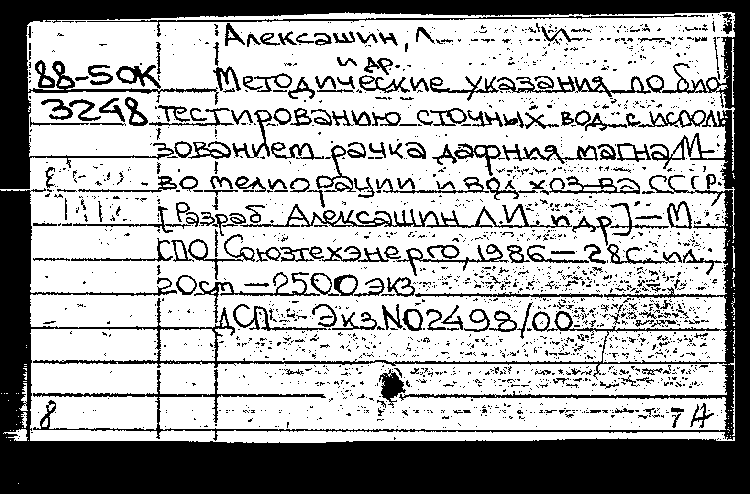 Алексашин, Л. И.
и др.
88-5ОК Методические указания по био-
3248 тестированию сточных вод с исполь
зованием рачка дафния магна/М-
во мелиорации и вод. хоз-ва СССР;
[Разраб. Алексашин Л.И. и др.] — М.
СПО Союзтехэнерго, 1986 — 28с. ил.;
20см. — 2500 экз.
ДСП — Экз.N02498/00
8 7 А